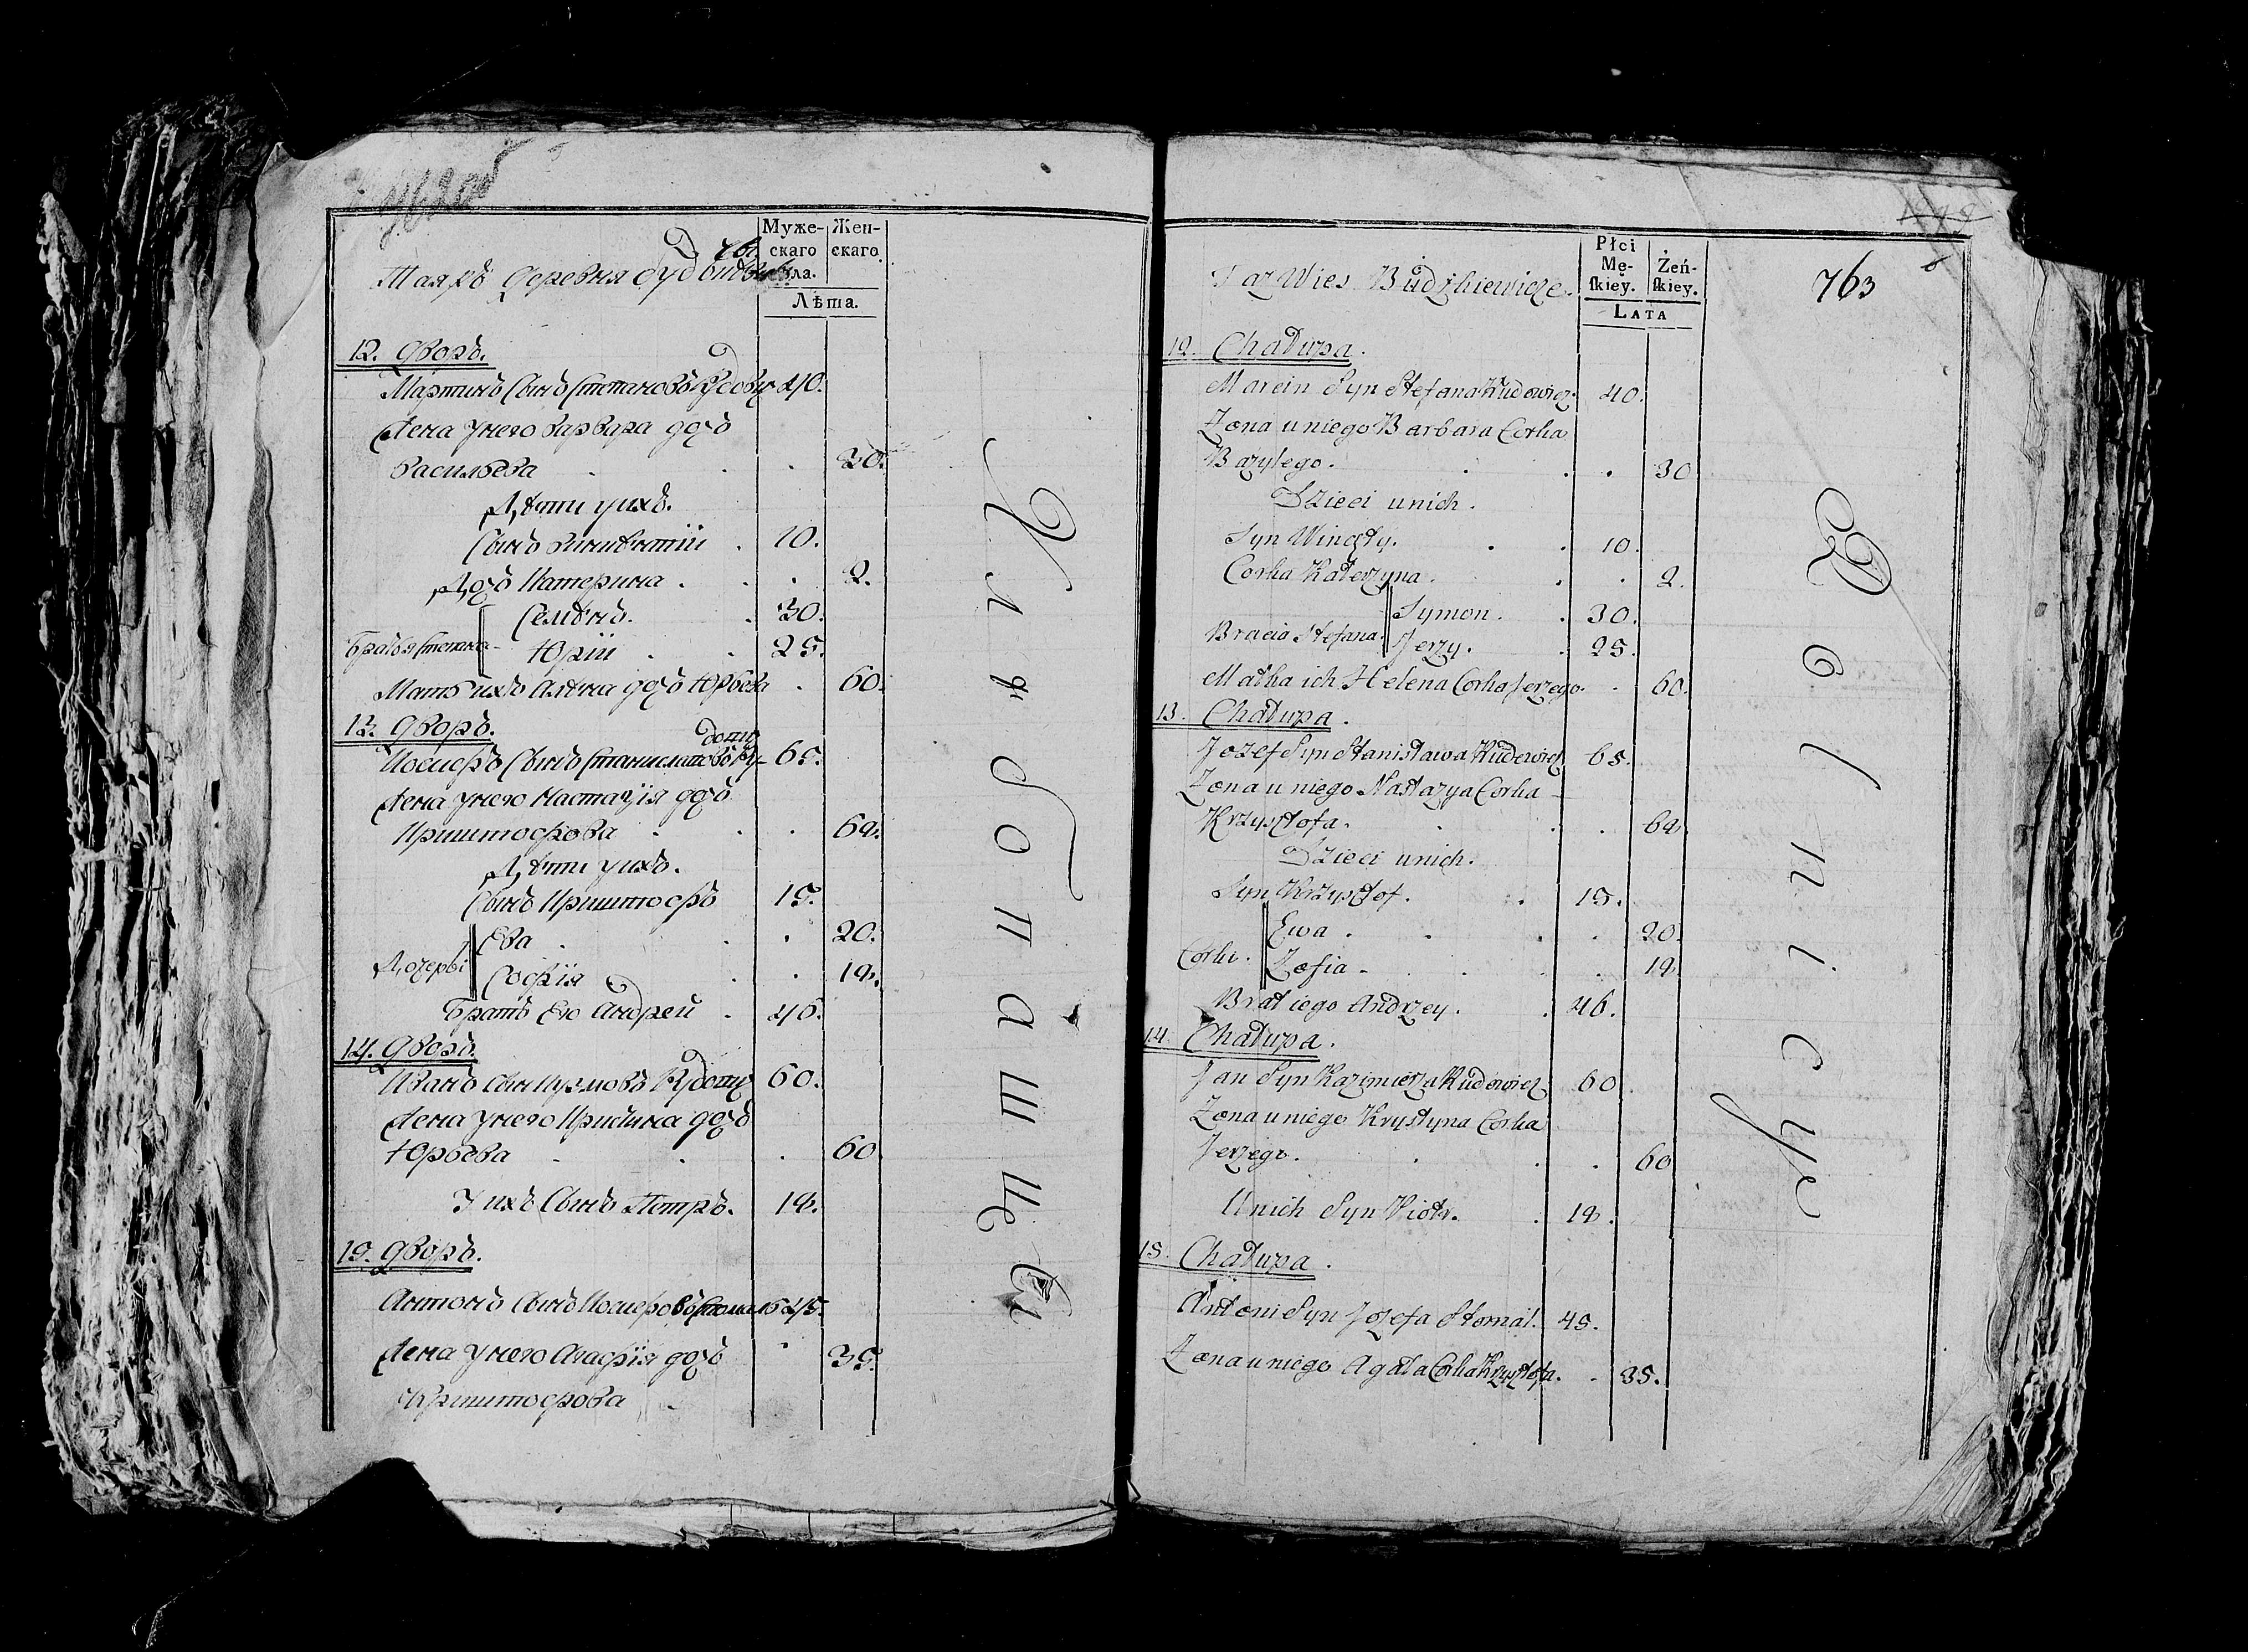 762 об
Муже-
скаго
Жен-
скаго
пола.
Таяжъ деревня Будзвило
Лѣта.
12. Дворъ.
Мартинъ Сынъ Степановъ Рудовичъ 40.
Жена унего Варвара дочь
Васильева . . . 30.
Дѣти унихъ.
Сынъ Винцентiй . 10.
Дочь Катерина . . . 2.
Семіонъ. . 30.
Братья Степана
Юрiй . . 25.
Мать ихъ Алена дочь Юрьева . 60.
13. Дворъ.
Иосифъ Сынъ Станиславовъ Рудовичъ 65.
Жена унего Настацiя дочь
Криштофова . . . 62.
Дѣти унихъ.
Сынъ Криштофъ 15.
Ева . . . 20.
Дочери
Софiя . . 12.
Братъ Его Андрей . 46.
14. Дворъ.
Иванъ Сынъ Рудовичъ 60.
Жена унего Кристина дочь
Юрьева . . . 60
У нихъ Сынъ Петръ. 12.
15. Дворъ.
Антонъ Сынъ Иосифовъ Стомаль 45.
Жена унего Агафiя дочь . 35.
Криштофова .
Кляботишце
763
Płci
Mę-
ſkiey.
Żeń-
ſkiey.
Taz Wies Budzkiewicze.
LATA
12. Chałupa.
Marcin Syn Stefana Rudowicz. 40.
Zona uniego Barbara Corka
Bazylego. . . . 30
Dzieci unich.
Syn Wincęty. . . 10.
Corka Katerzyna. . . 2.
Symon. . 30.
Bracia Stefana.
Jerzy. . 25.
Matka ich Helena Corka Jerzego. . 60.
13. Chałupa.
Jozef Syn Stanisława Rudowicz 65.
Zona u niego Nastazya Corka
Krzysztofa. . . . 62.
Dzieci unich.
Syn Krzysztof. . 15.
Ewa . . . . 20.
Corki.
Zofia . . . 12
Brat iego Andrzey. . 46.
14. Chałupa.
Jan Syn Kazimierza Rudowicz 60.
Zona uniego Krystyna Corka
Jerzego. . . . 60
Unich Syn Piotr. . 12.
15. Chałupa.
Antoni Syn Jozefa Stomal. 45.
Zona uniego Agata Corka Krzysztofa. . 35.
Rolnicy